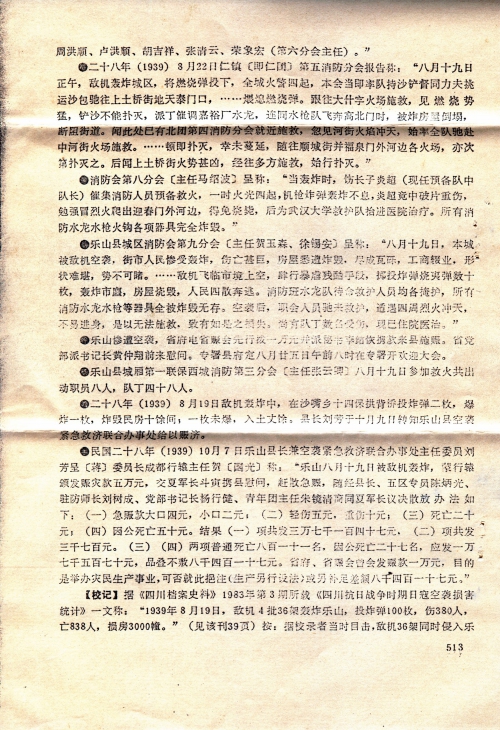 周洪顺、卢洪顺、胡吉祥、张清云、荣象宏（第六分会主任）。”
二十八年（1939）8月22日仁镇〔即仁团〕第五消防分会报告称：“八月十九日
正午，敌机轰炸城区，将燃烧弹投下，全城火警四起，本会当即率队持沙铲督同力夫挑
运沙包驰往上土桥街地天泰门口，……煨熄燃烧弹。跟往大什字火场施救，见燃烧势
猛，铲沙不能扑灭，派丁催调嘉裕厂水龙，连同水枪队飞奔高北门时，被炸房屋倒塌，
断阻街道。闻此处已有北团第四消防分会就近施救，忽见河街火焰冲天，始率全队驰赴
中河街火场施救。……顿即扑灭，幸未蔓延，随往顺城街并福泉门外河边各火场，亦次
第扑灭之。后闻上土桥街火势甚凶，经往多方施救，始行扑灭。”
消防会第八分会〔主任马绍波〕呈称：“当轰炸时，饬长子炎超（现任预备队中
队长）催集消防人员预备救火，一时火光四起，机枪炸弹轰炸不息，炎超竟中破片重伤，
勉强冒烈火爬出迎春门外河边，得免烧毙，后为武汉大学救护队抬进医院治疗。所有消
防水龙水枪火钩各项器具完全炸毁。”
乐山县城区消防会第九分会（主任贺玉森、徐锡安）呈称：“八月十九日，本城
被敌机空袭，街市人民惨受轰炸，伤亡甚巨，房屋悉遭炸毁，尽成瓦砾，工商辍业，形
状难堪，势不可睹。……敌机飞临市境上空，肆行暴虐残酷手段，掷投炸弹烧夷弹数十
枚，轰炸市廛，房屋烧毁，人民四散奔逃。消防班水龙队待命救护人员均各掩护，所有
消防水龙水枪等器具全被炸毁无存。空袭后，职会人员驰来救护，遭遇四周烈火冲天，
不易进身，是以无法施救，致有如是之损失，尚有队丁数名受伤，现已住院医治。”
乐山惨遭空袭，省府电省赈会先行拨一万元并派秘书李绍侬携款来县施赈。省党
部派书记长黄仲翔前来慰问。专署县府定八月廿五日午前八时在专署开欢迎大会。
乐山县城厢第一联保西城消防第三分会〔主任张云卿〕八月十九日参加救火共出
动职员八人，队丁四十八人。
二十八年（1939）8月19日敌机轰炸中，在沙嘴乡十四保拱背桥投炸弹二枚，爆
炸一枚，炸毁民房十馀间；一枚未爆，入土丈馀。县长刘芳于十月九日转知乐山县空袭
紧急救济联合办事处给以赈济。
民国二十八年（1939）10月7日乐山县长兼空袭紧急救济联合办事处主任委员刘
芳呈〔蒋〕委员长成都行辕主任贺〔国光〕称：“乐山八月十九日被敌机轰炸，蒙行辕
颁发赈灾款五万元，交夏军长斗寅携县慰问，赶散急赈，随经县长、五区专员陈炳光、
驻防师长刘树成、党部书记长杨行健、青年团主任朱镜清商同夏军长议决散放办法如
下：（一）急赈款大口四元，小口二元；（二）轻伤五元，重伤十元；（三）死亡二十
元；（四）因公死亡五十元。结果（一）项共发三万七千一百四十七元，（二）项共发
三千七百元。（三）（四）两项普通死亡八百一十一名，因公死亡二十七名，应发一万
七千五百七十元，品叠不敷八千四百一十七元。省府、省赈会曾会发赈款一万元，目的
是举办灾民生产事业，可否就此挹注（生产另行设法）或另补足差额八千四百一十七元。”
【校记】据《四川档案史料》1983年第3期所载《四川抗日战争时期日寇空袭损害
统计》一文称：“1939年8月19日，敌机4批36架轰炸乐山，投炸弹100枚，伤380人，
亡838人，损房3000幢。”（见该刊39页）按：据校录者当时目击，敌机36架同时侵入乐
513